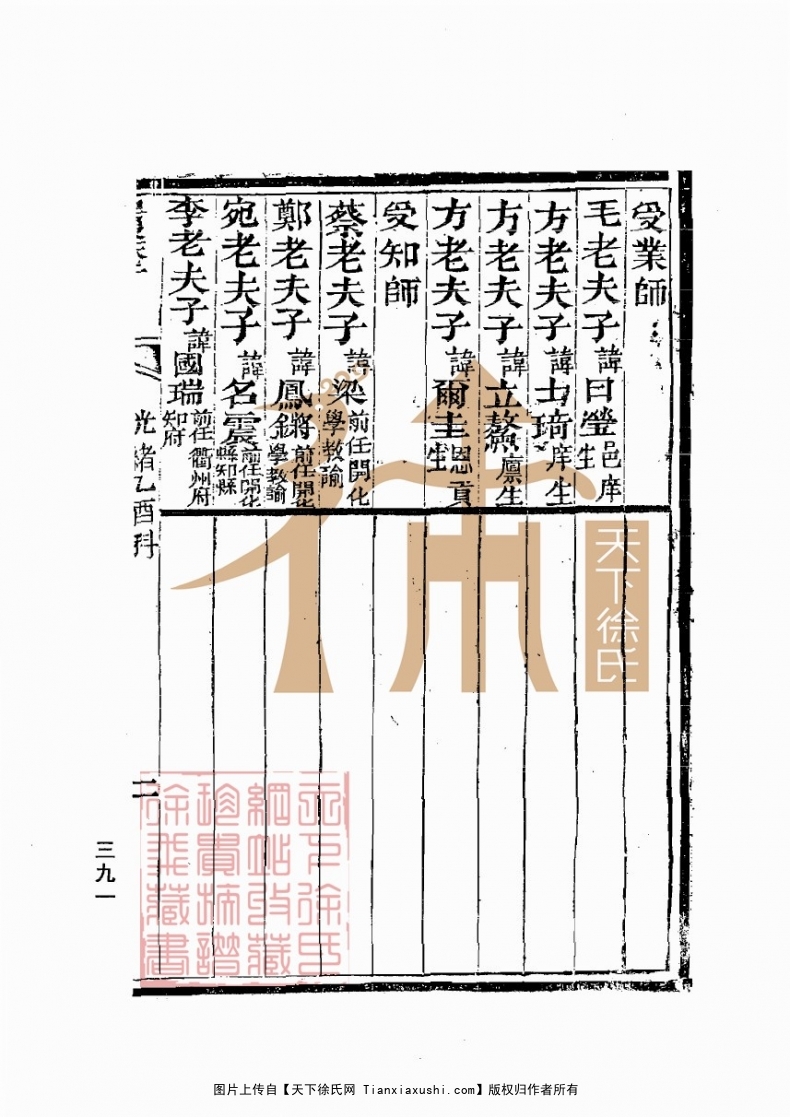 受業師
毛老夫子諱日瑩邑庠生
方老夫子諱士琦庠生
方老夫子諱立鰲廪生
方老夫子諱爾圭恩貢生
受知師
蔡老夫子諱梁前任開化學教諭
鄭老夫子諱鳳鏘前任開化學教諭
宛老夫子諱名震前任開化縣知縣
李老夫子諱國瑞前任衢州府知府
光緒乙酉科
二
三九一
徐
天下徐氏
天下徐氏
網站收藏
珍貴摘譜
徐義藏書
图片上传自【天下徐氏网 Tianxiaxushi.com】版权归作者所有